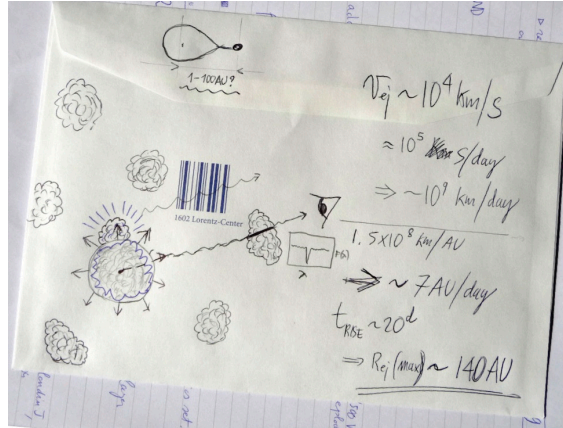 1-100AU?
1602 Lorentz-Center
F(λ)
λ
V_ej ~ 10^4 km/s
≈ 10^5 s/day
⇒ ~10^9 km/day
1.5x10^8 km/AU
~ 7AU/day
t_RISE ~20^d
⇒ R_ej (max) ~ 140AU
layer